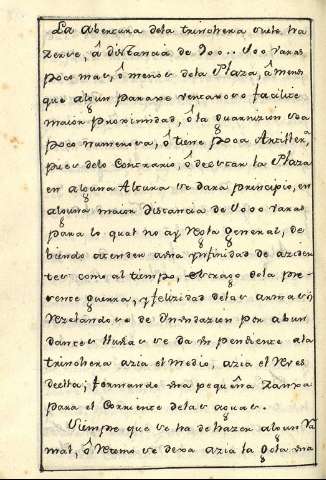 La abertura dela trinchera suele ha
zerse, â distancia de 900.. 1000 varas
poco mas, ô menos dela Plaza, âmenos
que algun paraxe ventaxoso facilite
maior proximidad, ô la Guarnizion sea
poco numerosa, ô tiene poca Artiller.ª
pues delo Contrario, ô de estar la Plaza
en alguna Altura se dara principio, en
alguna maior distancia de varas
para lo qual no ay Nota general, de
biendo atender aêsta ynfinidad de aziden
tes como al tiempo, dela pre
sente guerra, y felizidad delas armas;
Rezelandose de Inundazion por abun
dantes lluvias se da pendiente ala
trinchera azia el medio, azia el Reves
deella; formando una pequeña Zanxa
para el Corriente delas aguas.
Siempre que se ha de hazer algun Ra
mal, ô Retorno se dexa azia la una